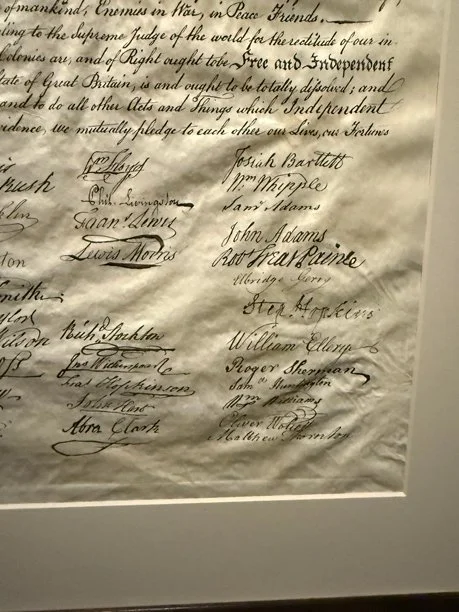 of mankind, Enemies in War, in Peace Friends.
ling to the Supreme Judge of the world for the rectitude of our in-
Colonies are, and of Right ought to be Free and Independent
State of Great Britain, is and ought to be totally dissolved; and
and to do all other Acts and Things which Independent
vidence, we mutually pledge to each other our Lives, our Fortunes
Rush
klin
ton
Smith
ylor
Wilson
oss
Wm Floyd
Phil. Livingston
Frans. Lewis
Lewis Morris
Richd. Stockton
Jno Witherspoon
Fras. Hopkinson
John Hart
Abra Clark
Josiah Bartlett
Wm. Whipple
Saml Adams
John Adams
Robt Treat Paine
Elbridge Gerry
Step. Hopkins
William Ellery
Roger Sherman
Saml. Huntington
Wm Williams
Oliver Wolcott
Matthew Thornton